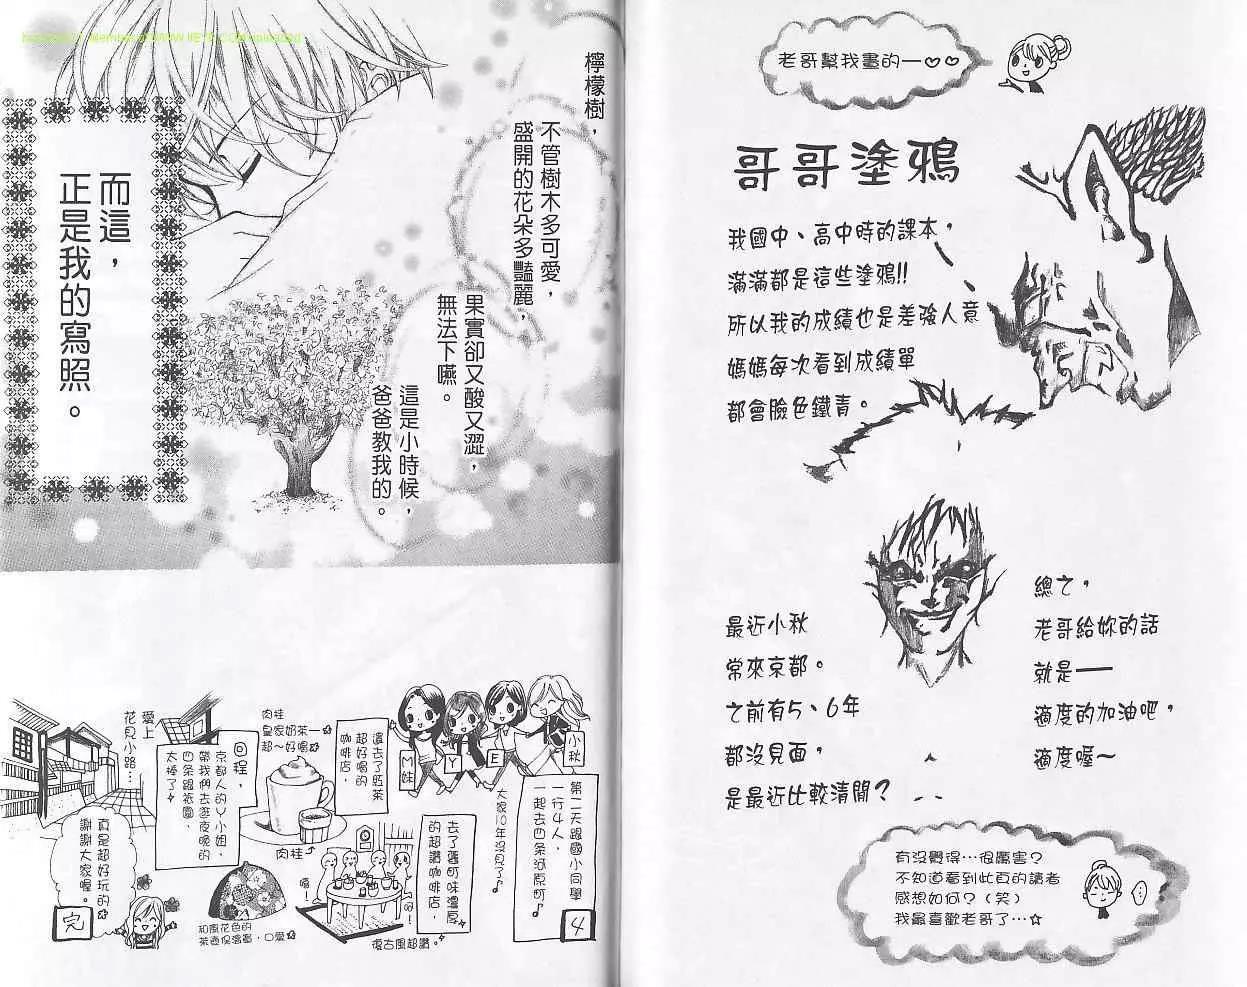 老哥幫我畫的—♡♡
哥哥塗鴉
我國中、高中時的課本，
滿滿都是這些塗鴉!!
所以我的成績也是差強人意
媽媽每次看到成績單
都會臉色鐵青。
總之，
老哥給妳的話
就是——
適度的加油吧，
適度喔～
最近小秋
常來京都。
之前有5、6年
都沒見面，
是最近比較清閒？
有沒覺得…很厲害？
不知道看到此頁的讀者
感想如何？（笑）
我最喜歡老哥了…☆
檸檬樹，
不管樹木多可愛，
盛開的花朵多豔麗，
果實卻又酸又澀，
無法下嚥。
這是小時候，
爸爸教我的。
而這，
正是我的寫照。
小秋
E
Y
M妹
第二天跟國小同學
一行4人，
一起去四条河原町♪
大家10年沒見了♪
4
還去了紅茶
超好喝的
咖啡店，
肉桂
皇家奶茶—☆
超～好喝☆
肉桂
去了舊町味濃厚
的超讚咖啡店，
復古風超讚。☆
和風花色的
茶壺保溫套，口愛☆
回程，
京都人的Y小姐，
帶我們去逛夜晚的
四条跟祇園，
太棒了☆
愛上
花見小路…
真是超好玩的☆
謝謝大家喔。
完